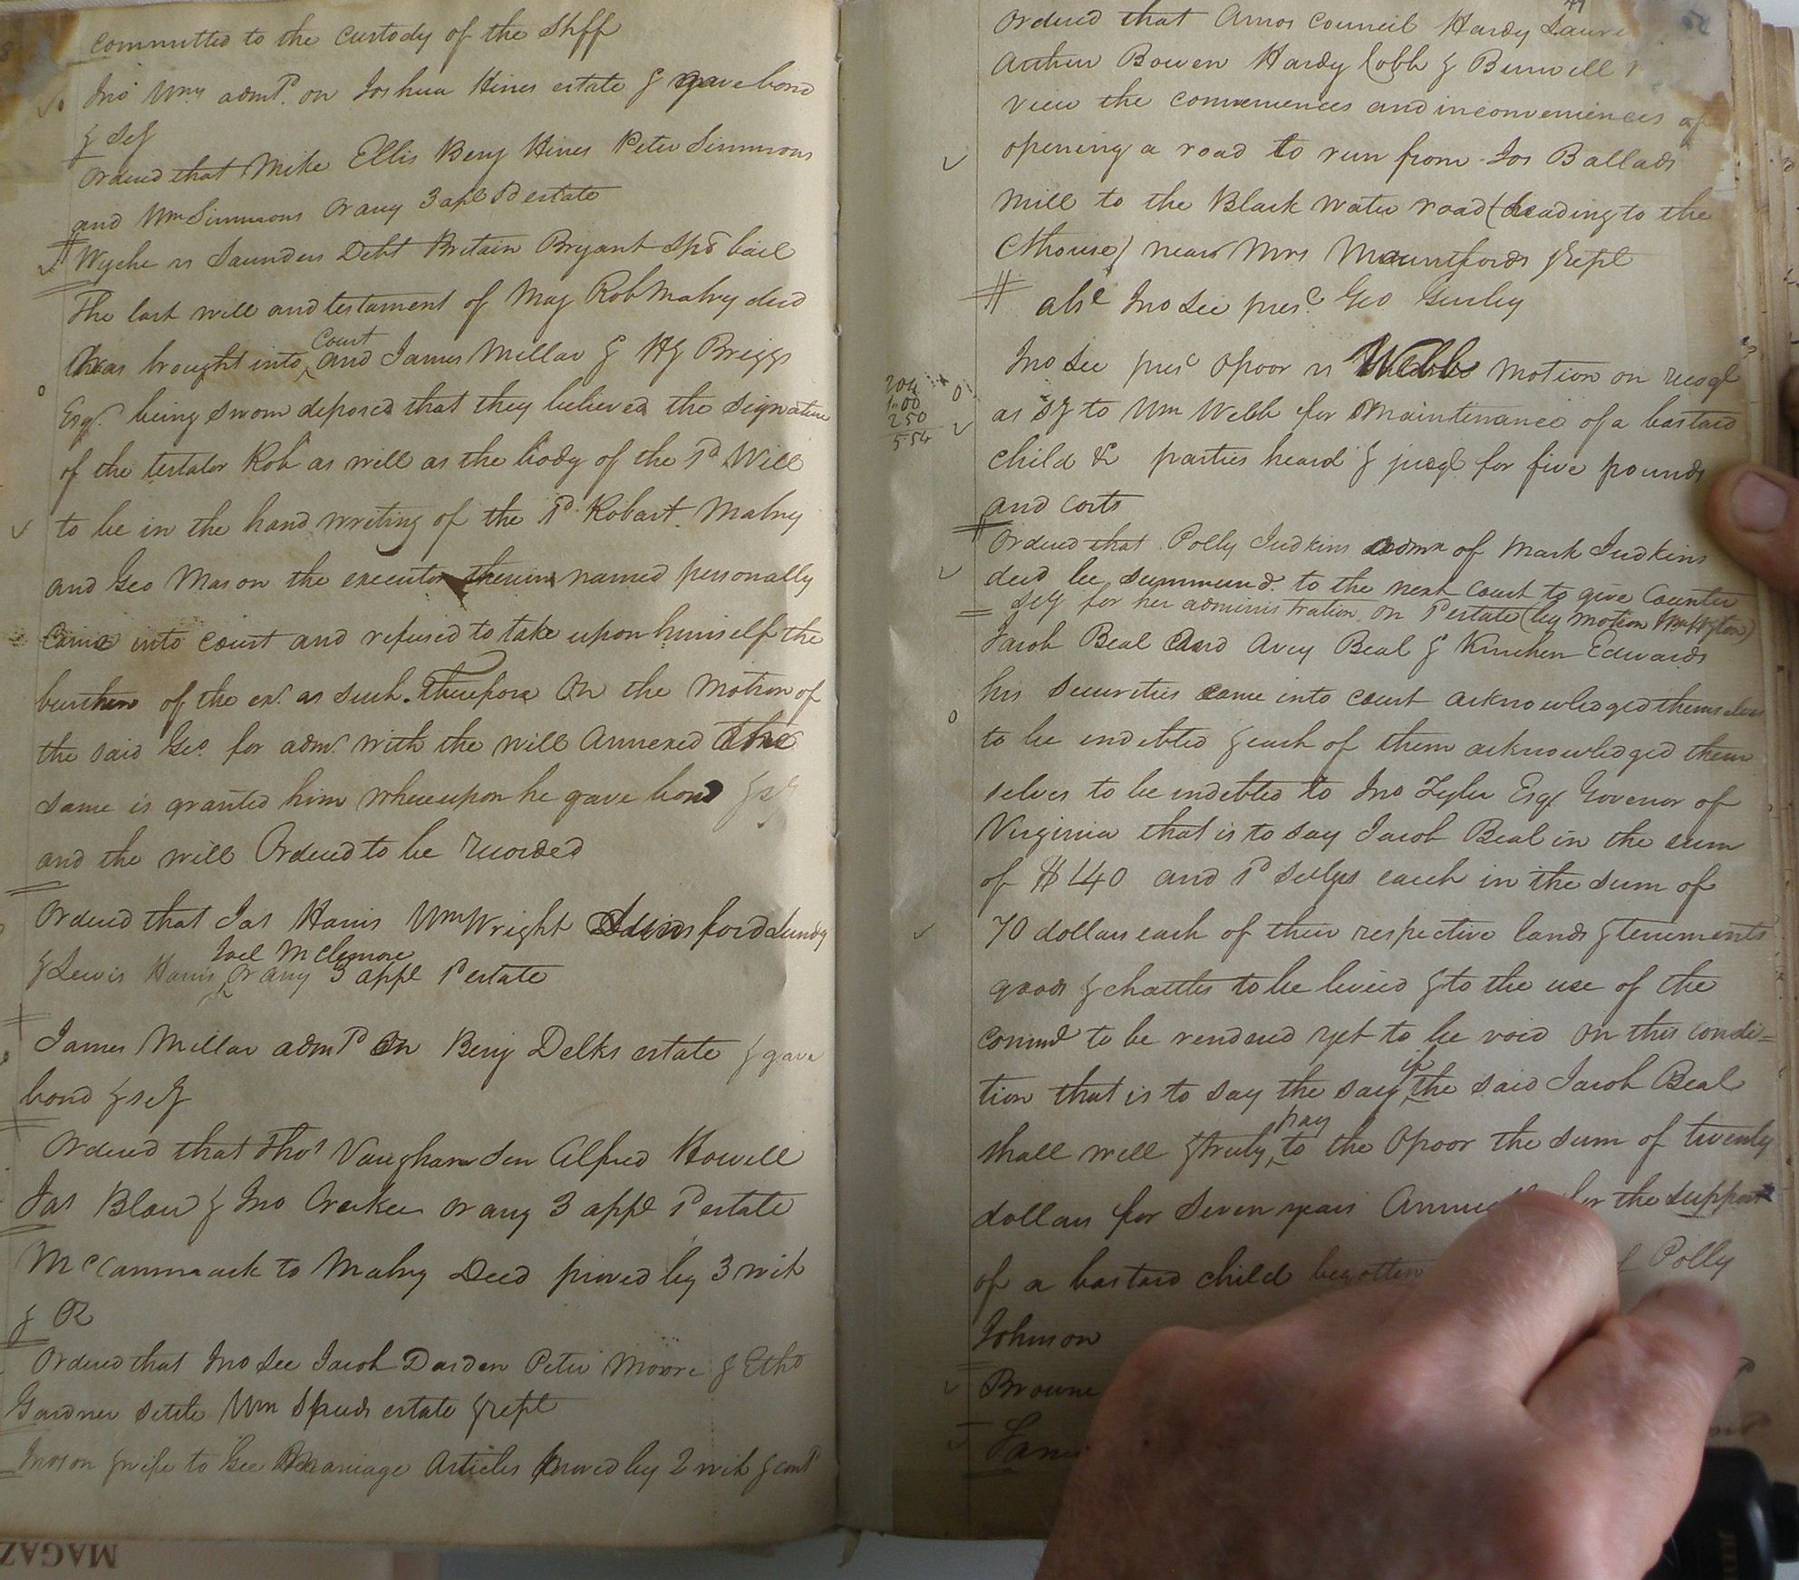 committed to the custody of the Shff
Jno Wms admd. on Joshua Hines estate & gave bond
& Sey
Ordered that Mike Ellis Benj Hines Peter Simmons
and Wm Simmons Or any 3 apl Sd estate
Wyche vs Saunders Debt Britain Bryant Spd bail
The last will and testament of Maj Rob Mabry decd
was brought into Court and James Millar & HJ Briggs
Esqr. being sworn deposed that they believed the Signature
of the testator Rob as will as the body of the Sd Will
to be in the hand writing of the Sd. Robart Mabry
and Geo Mason the executor therein named personally
Came into court and refused to take upon himself the
burthen of the exr. as such. Therefore On the Motion of
the said Geo. for admn. with the will Annexed the
same is granted him whereupon he gave bond & sey
and the will Ordered to be recorded
Ordered that Jas Harris Wm Wright
Joel McLemore
& Lewis Harris, Or any 3 appl Sd estate
James Millar admd On Benj Delks estate & gave
bond & sey
Ordered that Thos Vaughan Sen Alfred Howell
Jas Blow & Jno Crocker Or any 3 appl Sd estate
McCammack to Mabry Deed proved by 3 wit
& OR
Ordered that Jno Lee Jacob Darden Peter Moore & Ethd
Gardner settle Wm Speeds estate & rept
Mason & wife to Gee Marriage Articles proved by 2 wit & cont
Ordered that Amos Council Hardy
Arthur Bowen Hardy Cobb & Burwell
view the conveniences and inconveniences of
opening a road to run from Jos Ballads
Mill to the Black water road (leading to the
Cthouse) near Mrs Mountfords & rept
abst Jno Lee prest Geo Gurley
Jno Lee prest Opoor vs Webb Motion on recogl
204
100
250
554
as sy to Wm Webb for Maintenance of a bastard
child &c parties heard & judgt for five pounds
and costs
Ordered that Polly Judkins admx of Mark Judkins
decd be summond. to the next court to give Counter
sey for her administration on Sd estate (by motion
Jacob Beal and Avey Beal & Kinchen Edwards
his Securities came into court acknowledged themselves
to be indebted & each of them acknowledged them
selves to be indebted to Jno Tyler Esqr Govenor of
Virginia that is to say Jacob Beal in the sum
of $140 and Sd seltys each in the sum of
70 dollars each of their respective lands & tenements
goods & chattles to be levied & to the use of the
comwd to be rendered yet to be void On this condi=
tion that is to say the say if the said Jacob Beal
shall will & truly pay to the Opoor the sum of twenty
dollars for Seven years for the support
of a bastard child begotten Polly
Johnson
Browne
MAGAZ